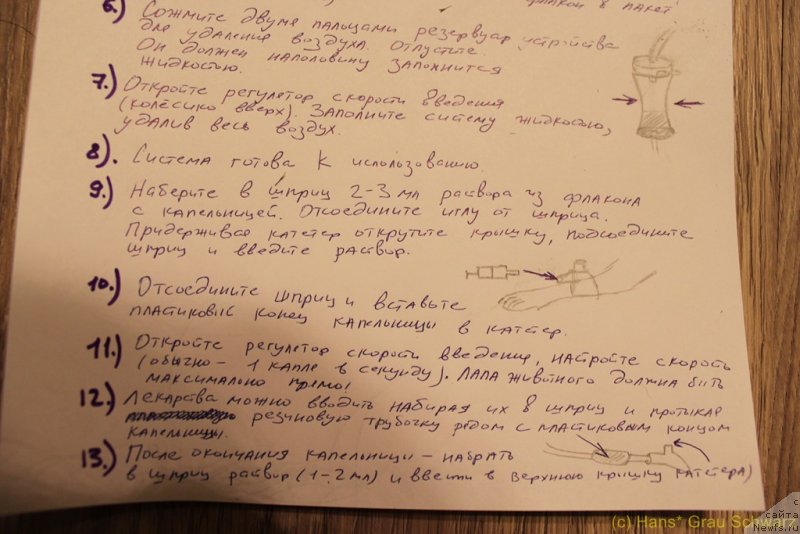 6.) Сожмите двумя пальцами резервуар устройства
для удаления воздуха. Отпустите.
Он должен наполовину заполнится
жидкостью.
7.) Откройте регулятор скорости введения
(колёсико вверх). Заполните систему жидкостью,
удалив весь воздух.
8). Система готова к использованию.
9.) Наберите в шприц 2-3 мл раствора из флакона
с капельницей. Отсоедините иглу от шприца.
Придерживая катетер открутите крышку, подсоедините
шприц и введите раствор.
10.) Отсоедините шприц и вставьте
пластиковый конец капельницы в катетер.
11.) Откройте регулятор скорости введения, настройте скорость
(обычно - 1 капля в секунду). Лапа животного должна быть
максимально прямой
12.) Лекарства можно вводить набирая их в шприц и протыкая
резиновую трубочку рядом с пластиковым концом
капельницы.
13.) После окончания капельницы - набрать
в шприц раствор (1-2 мл) и ввести в верхнюю крышку катетера)
(c) Hans* Grau Schwarz
с
сайта
Newfs.ru